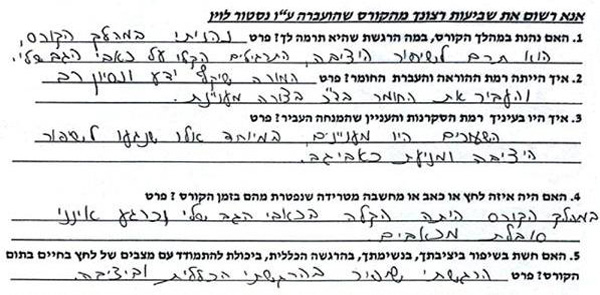 אנא רשום את שביעות רצונך מהקורס שהועברה ע"ו נסטור לוין
1. האם נהנת במהלך הקורס, במה הרגשת שהיא תרמה לך? פרט נהניתי במהלך הקורס,
הוא תרם לשיפור היציבה, התרגילים הקלו על כאבי הגב שלי.
2. איך הייתה רמת ההוראה והעברת החומר? פרט המורה שיקף ידע ונסיון רב
והעביר את החומר בד"כ בצורה מעניינת.
3. איך היו בעיניך רמת הסקרנות והעניין שהמנחה העביר? פרט
השעורים היו מעניינים, במיוחד אלו שנגעו לשיפור
היציבה ומניעת כאבי גב.
4. האם היה איזה לחץ או כאב או מחשבה מטרידה שנפטרת מהם בזמן הקורס? פרט
במהלך הקורס היתה הקלה בכאבי הגב שלי וכרגע אינני
סובלת מכאבים.
5. האם חשת בשיפור ביציבתך, בנשימתך, בהרגשה הכללית, ביכולת להתמודד עם מצבים של לחץ בחיים בתום
הקורס? פרט הרגשתי שיפור בהרגשתי הכללית וביציבה.